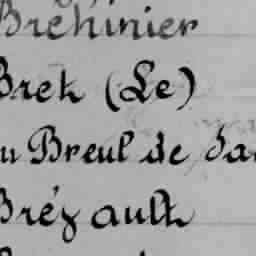 Bréhinier
Bret (Le)
u Breul de Sa
Brézault